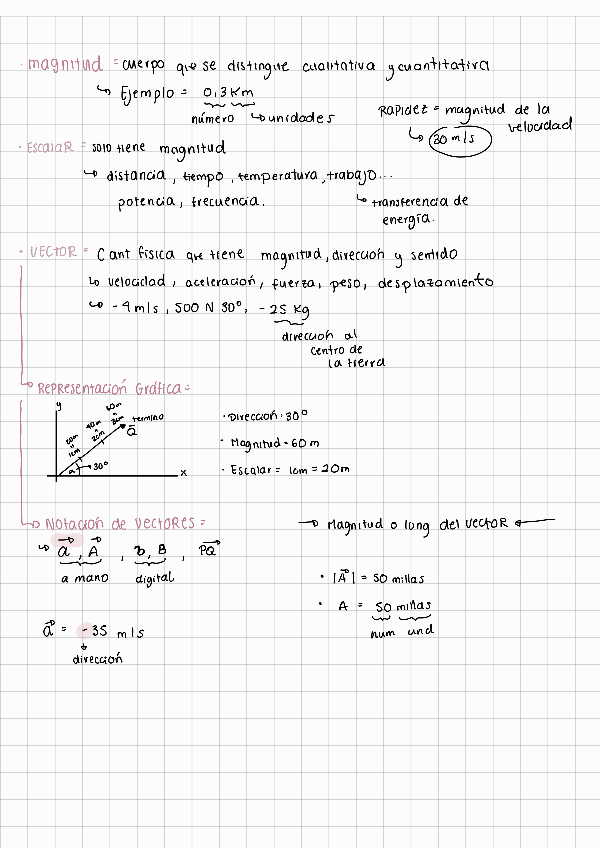 · magnitud = cuerpo que se distingue cualitativa y cuantitativa
↳ Ejemplo = 0,3 Km
número ↳ unidades
RAPIDEZ = magnitud de la velocidad
↳ 30 m/s
· Escalar = solo tiene magnitud
↳ distancia, tiempo, temperatura, trabajo...
potencia, frecuencia.
↳ transferencia de
energía.
· VECTOR = Cant física que tiene magnitud, dirección y sentido
↳ velocidad, aceleración, fuerza, peso, desplazamiento
↳ -4 m/s, 500 N 30°, -25 Kg
dirección al
centro de
la tierra
↳ Representación Gráfica =
y
60m
40m
3cm
termino
20m
2cm
Q⃗
1cm
30°
x
· Dirección = 30°
· Magnitud = 60 m
· Escalar = 1cm = 20m
↳ Notación de VECTORES =
↳ a⃗, A⃗, b, B, PQ⃗
a mano digital
a⃗ = -35 m/s
dirección
→ Magnitud o long del VECTOR ←
· |A⃗| = 50 millas
· A = 50 millas
num und